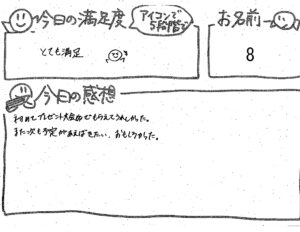 今日の満足度
アイコンで
5段階で
お名前
とても満足
8
今日の感想
初めてプレゼント大会がでもらえてうれしかった。
また次も予定があえばぜたい、おもしろかった。